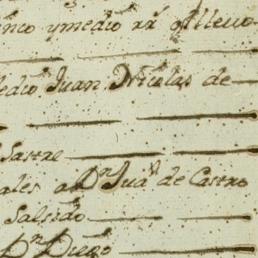 nco y medio rr q.e llevo
edio Juan Nicolas de
Sastre
ales a D.n Juã de Castro
Salsido
D.n Diego